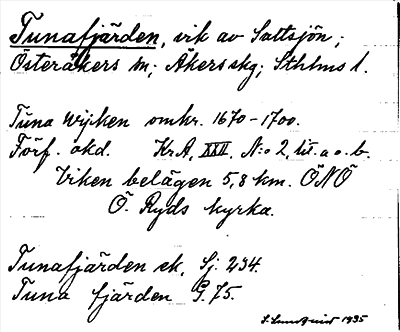 Tunafjärden, vik av Saltsjön;
Österåkers sn; Åkers skg; Sthlms l.
Tuna Wijken omkr. 1670-1700.
Förf. okd. KrA, XXII. N:o 2, lit. a o. b.
Viken belägen 5,8 km. ÖNÖ
Ö. Ryds kyrka.
Tunafjärden ek. Sj. 234.
Tuna fjärden G. 75.
S. Lundquist 1935